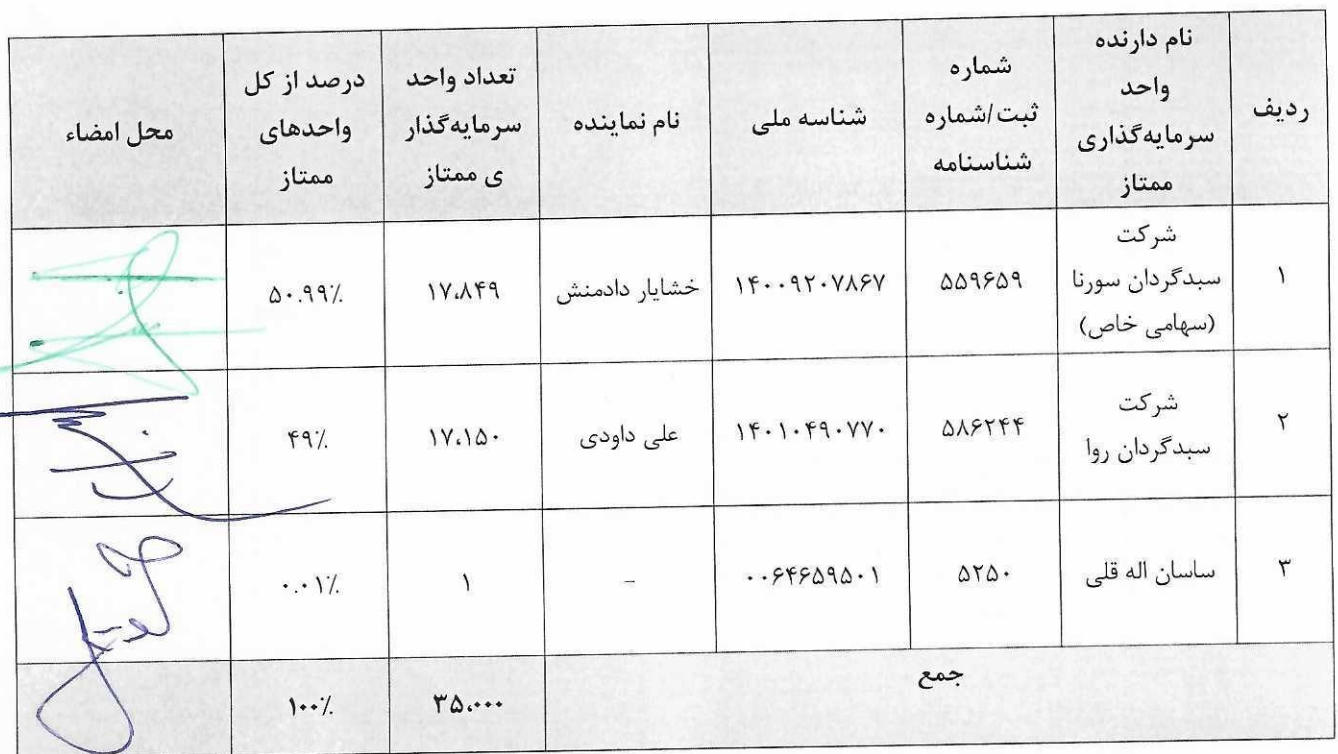 ردیف
نام دارنده
واحد
سرمایه‌گذاری
ممتاز
شماره
ثبت/شماره
شناسنامه
شناسه ملی
نام نماینده
تعداد واحد
سرمایه‌گذار
ی ممتاز
درصد از کل
واحدهای
ممتاز
محل امضاء
۱
شرکت
سبدگردان سورنا
(سهامی خاص)
۵۵۹۶۵۹
۱۴۰۰۹۲۰۷۸۶۷
خشایار دادمنش
۱۷،۸۴۹
۵۰.۹۹٪
۲
شرکت
سبدگردان روا
۵۸۶۲۴۴
۱۴۰۱۰۴۹۰۷۷۰
علی داودی
۱۷،۱۵۰
۴۹٪
۳
ساسان اله قلی
۵۲۵۰
۰۰۶۴۶۵۹۵۰۱
-
۱
۰.۰۱٪
جمع
۳۵،۰۰۰
۱۰۰٪